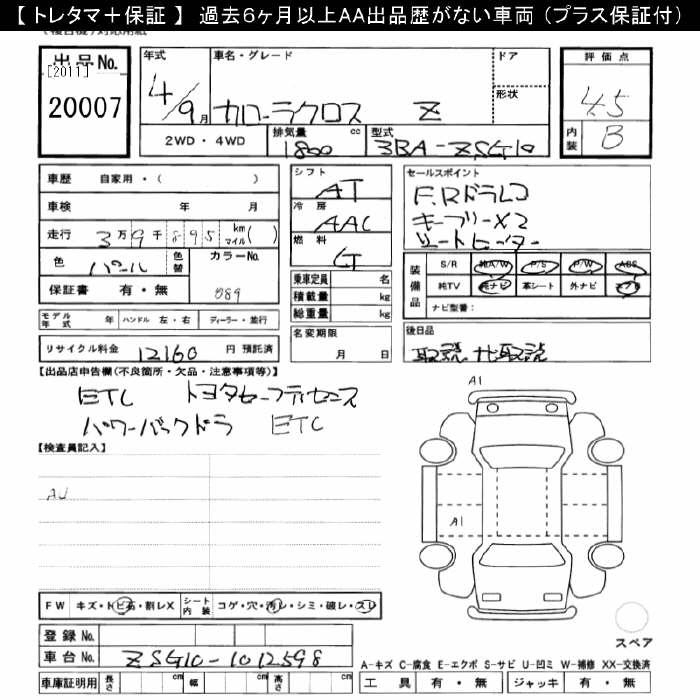 【 トレタマ＋保証 】 過去6ヶ月以上AA出品歴がない車両 (プラス保証付)
出品No. 年式 車名・グレード ドア 評価点
[2011]
20007 4/9月 カローラクロス Z 形状 4.5
2WD・4WD 排気量 1800 cc 型式 3BA-ZSG10 内装 B
車歴 自家用・( ) シフト AT セールスポイント
車検 年 月 冷房 AAC F.Rドラレコ
走行 3万9千895 km マイル( ) 燃料 G キーフリーX2
シートヒーター
色 パール 色替 カラーNo. 089
保証書 有・無
乗車定員 名
積載量 kg
総重量 kg
装備品 S/R 純A/W P/S P/W ABS
純TV 純ナビ 革シート 外ナビ エアB
ナビ型番:
モデル年式 年 ハンドル 左・右 ディーラー・並行
名変期限 月 日
後日品
リサイクル料金 12160 円 預託済
取説 ナビ取説
【出品店申告欄(不良箇所・欠品・注意事項等)】
ETC トヨタセーフティセンス
パワーバックドラ ETC
A1
【検査員記入】
AU
A1
FW キズ・トビ石・割レX シート内装 コゲ・穴・汚レ・シミ・破レ・スレ
スペア
登録No.
車台No. ZSG10-1012598
A-キズ C-腐食 E-エクボ S-サビ U-凹ミ W-補修 XX-交換済
車庫証明用 長さ cm 幅 cm 高さ cm 工具 有・無 ジャッキ 有・無